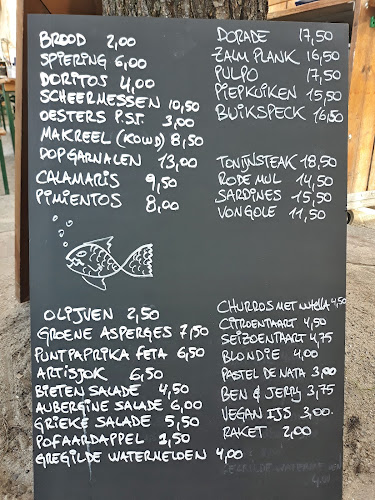 BROOD 2,00
SPIERING 6,00
DORITOS 4,00
SCHEERMESSEN 10,50
OESTERS P.ST. 3,00
MAKREEL (KOUD) 8,50
DOPGARNALEN 13,00
CALAMARIS 9,50
PIMIENTOS 8,00
DORADE 17,50
ZALM PLANK 16,50
PULPO 17,50
PIEPKUIKEN 15,50
BUIKSPECK 16,50
TONIJNSTEAK 18,50
RODE MUL 14,50
SARDINES 15,50
VONGOLE 11,50
OLIJVEN 2,50
GROENE ASPERGES 7,50
PUNTPAPRIKA FETA 6,50
ARTISJOK 6,50
BIETEN SALADE 4,50
AUBERGINE SALADE 6,00
GRIEKSE SALADE 5,50
POFAARDAPPEL 1,50
GREGILDE WATERMELOEN 4,00
CHURROS MET NUTELLA 4,50
CITROENTAART 4,50
SEIZOENTAART 4,75
BLONDIE 4,00
PASTEL DE NATA 3,00
BEN & JERRY 3,75
VEGAN IJS 3,00
RAKET 2,00